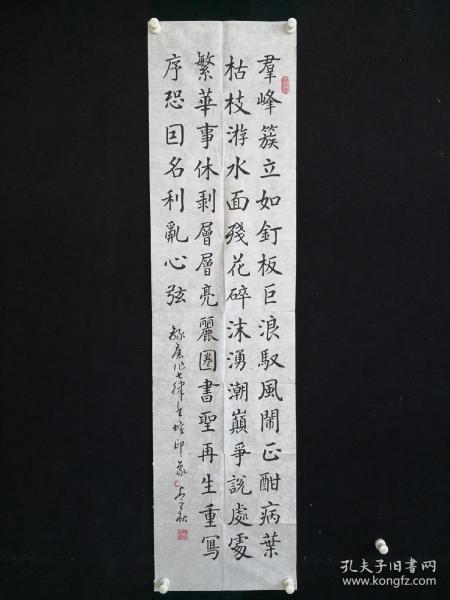 羣峰簇立如釘板巨浪馭風鬧正酣病葉
枯枝游水面殘花碎沫湧潮巔爭說處處
繁華事休剩層層亮麗圈書聖再生重寫
序恐因名利亂心弦
孔夫子旧书网
www.kongfz.com